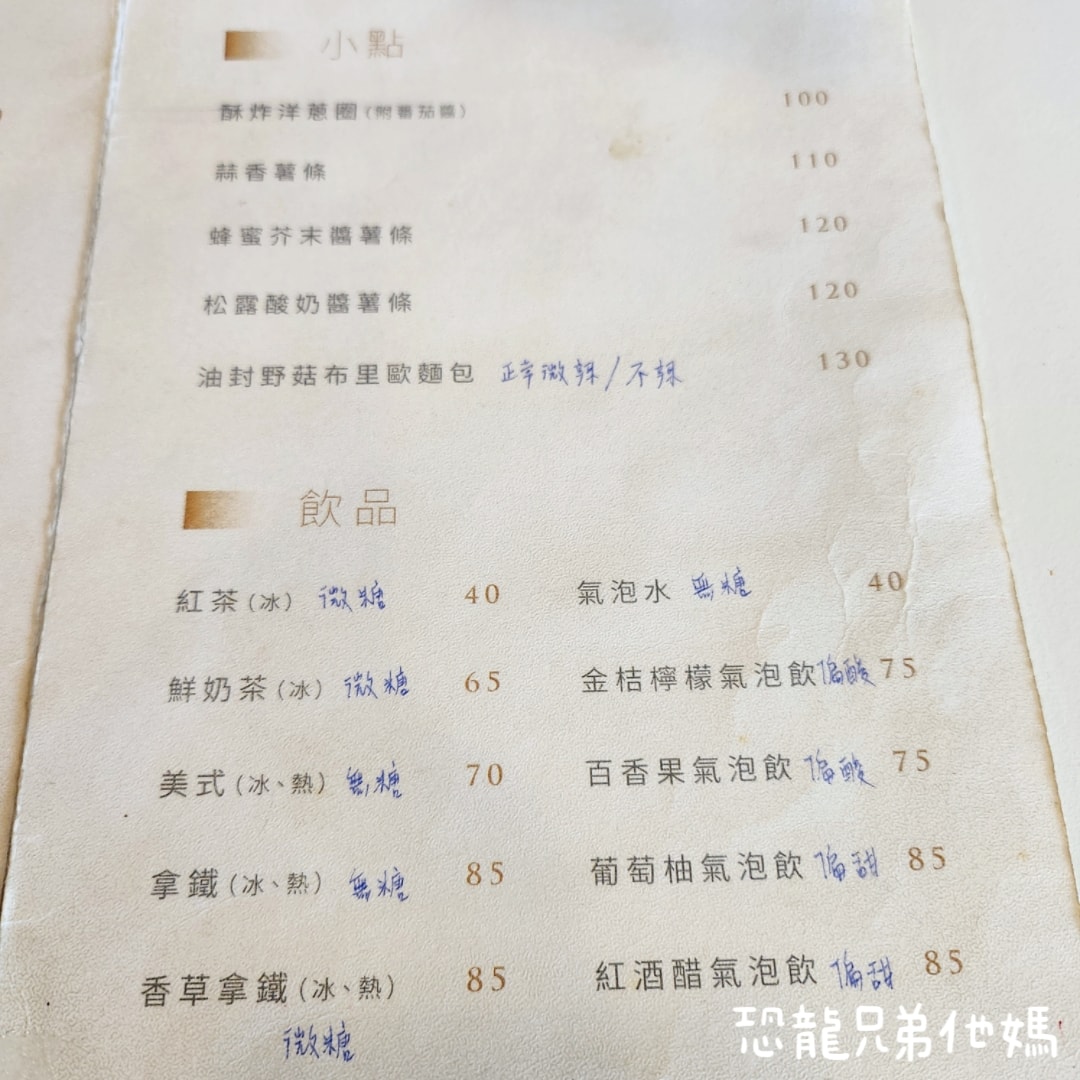 小點
酥炸洋蔥圈(附蕃茄醬) 100
蒜香薯條 110
蜂蜜芥末醬薯條 120
松露酸奶醬薯條 120
油封野菇布里歐麵包 正常微辣/不辣 130
飲品
紅茶(冰) 微糖 40
氣泡水 無糖 40
鮮奶茶(冰) 微糖 65
金桔檸檬氣泡飲 偏酸 75
美式(冰、熱) 無糖 70
百香果氣泡飲 偏酸 75
拿鐵(冰、熱) 無糖 85
葡萄柚氣泡飲 偏甜 85
香草拿鐵(冰、熱) 85
微糖
紅酒醋氣泡飲 偏甜 85
恐龍兄弟他媽